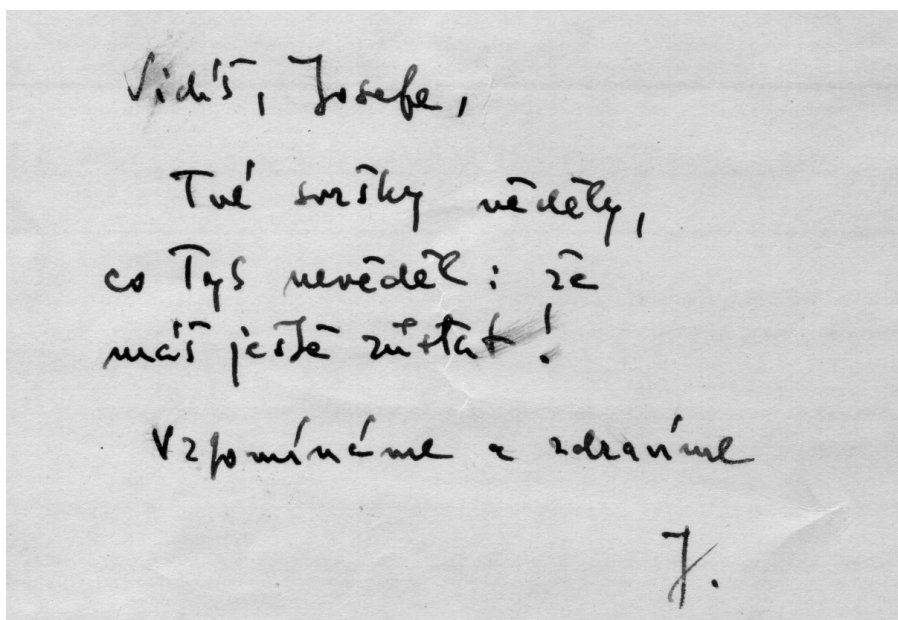 Vidíš, Josefe,
Tvé svršky věděly,
co Tys nevěděl: že
máš ještě zůstat!
Vzpomínáme a zdravíme
J.